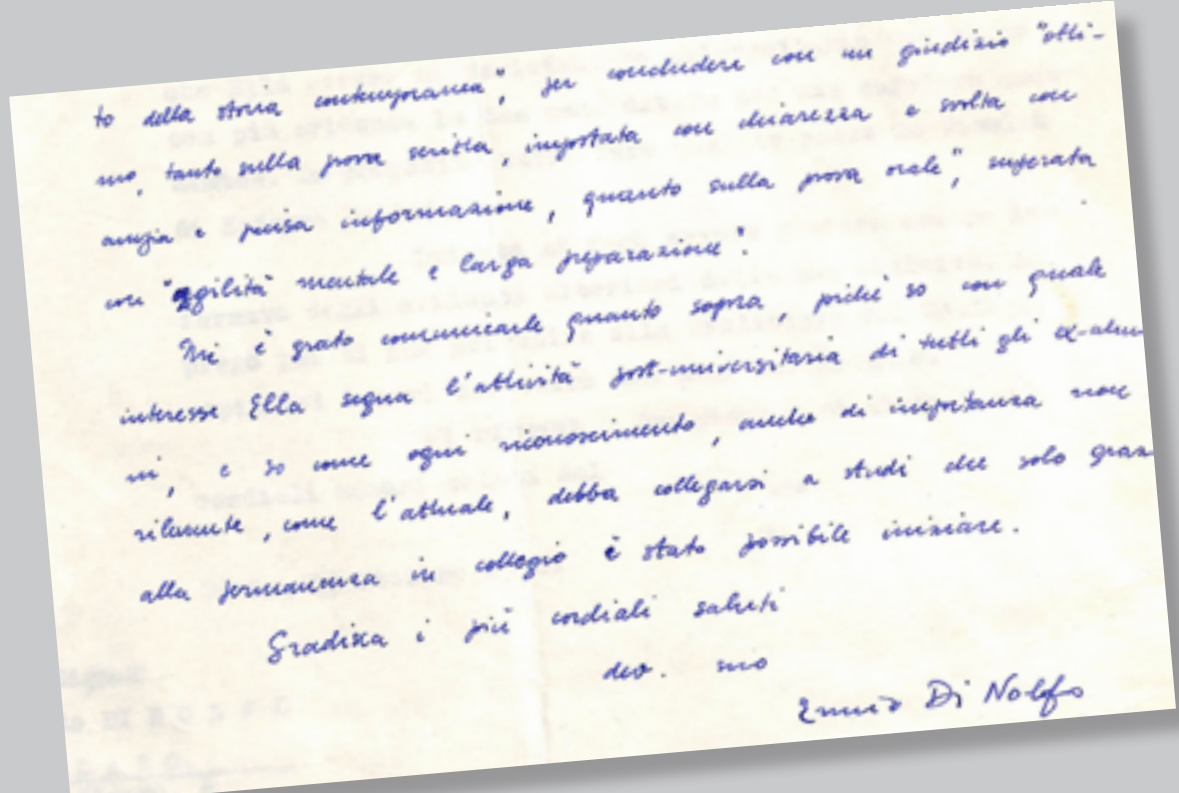 to della storia contemporanea", per concludere con un giudizio "otti-
mo, tanto sulla prova scritta, impostata con chiarezza e svolta con
ampia e precisa informazione, quanto sulla prova orale", superata
con "agilità mentale e larga preparazione".
Mi è grato comunicarle quanto sopra, poiché so con quale
interesse Ella segua l'attività post-universitaria di tutti gli ex-alun-
ni, e so come ogni riconoscimento, anche di importanza non
rilevante, come l'attuale, debba collegarsi a studi che solo graz
alla permanenza in collegio è stato possibile iniziare.
Gradisca i più cordiali saluti
dev. mo
Ennio Di Nolfo